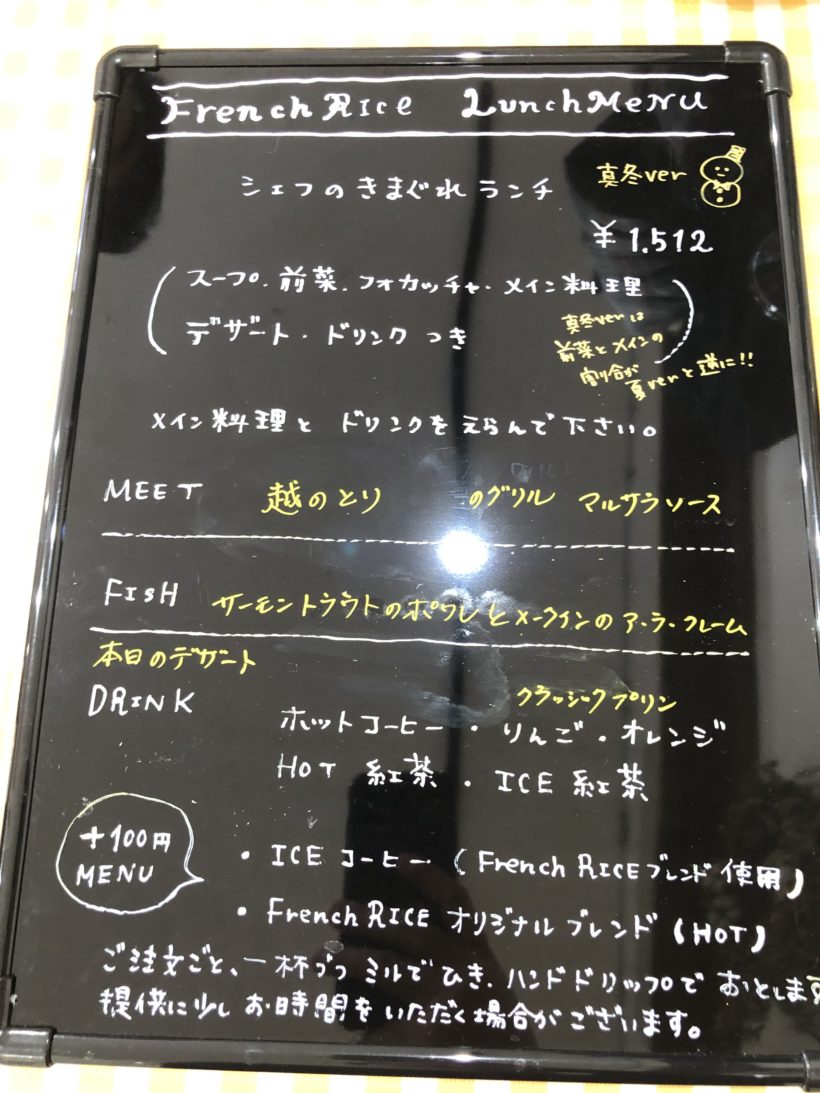 French RICE LunchMeNU
シェフのきまぐれランチ 真冬ver
¥1.512
(スープ.前菜.フォカッチャ.メイン料理
デザート・ドリンクつき)
真冬verは
前菜とメインの
割合が
夏verと逆に!!
メイン料理と ドリンクをえらんで下さい。
MEET 越のとり のグリル マルサラソース
FISH サーモントラウトのポワレとメークインのア・ラ・クレーム
本日のデザート
クラッシックプリン
DRINK
ホットコーヒー・りんご・オレンジ
HOT 紅茶 . ICE 紅茶
+100円
MENU
・ICE コーヒー (French RICEブレンド使用)
・French RICE オリジナルブレンド(HOT)
ご注文ごと、一杯づつ ミルでひき、ハンドドリップで おとします
提供に少しお時間をいただく場合がございます。